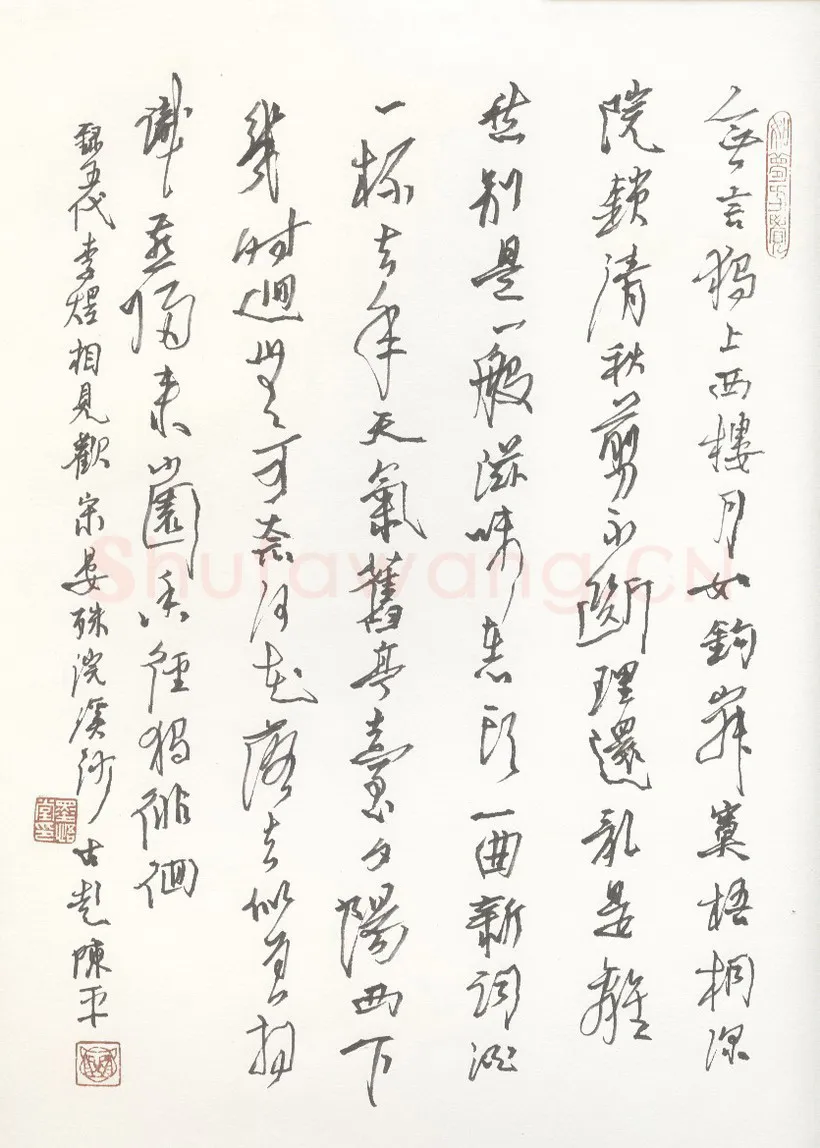 無言獨上西樓月如鉤寂寞梧桐深
院鎖清秋剪不斷理還亂是離
愁別是一般滋味在心頭一曲新詞酒
一杯去年天氣舊亭臺夕陽西下
幾時迴無可奈何花落去似曾相
識燕歸來小園香徑獨徘徊
錄五代李煜相見歡宋晏殊浣溪沙古彭陳平
Shufawang.CN